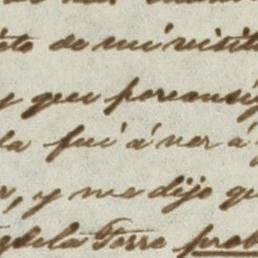 eto de mi visita
y que por consig
la fuí á ver á
r, y me dijo qu
de la Torre prob